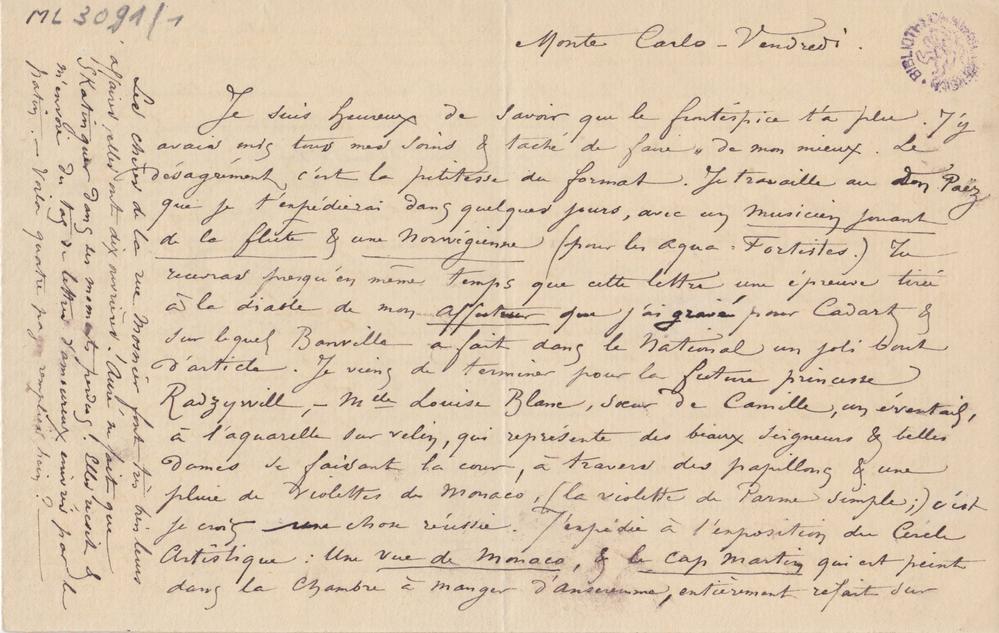 ML 3091/1
Monte Carlo - Vendredi.
Je suis heureux de savoir que le frontispice t'a plu. J'y
avais mis tous mes soins & taché de faire „ de mon mieux. Le
désagrément, c'est la petitesse du format. Je travaille au Don Paëz
que je t'expédierai dans quelques jours, avec un musicien jouant
de la flûte & une Norwégienne (pour les aqua-Fortistes.) Tu
recevras presqu'en même temps que cette lettre une épreuve tirée
à la diable de mon affuteur que j'ai gravé pour Cadart &
sur lequel Banville a fait dans le National un joli bout
d'article. Je viens de terminer pour la future princesse
Radzywill, - Mlle Louise Blanc, sœur de Camille, un éventail,
à l'aquarelle sur vélin, qui représente des beaux seigneurs & belles
dames se faisant la cour, à travers des papillons & une
pluie de violettes du Monaco, (la violette de Parme simple;) c'est
je crois une chose réussie. J'expédie à l'exposition du Cercle
Artistique : Une vue de Monaco, & le cap Martin qui est peint
dans la chambre à manger d'Anseremme, entièrement refait sur
Les chères de la rue Mosnier font très bien leurs
affaires, elles ont dix ouvrières! Aussi ne fait que
Skatinguer dans ses moments perdus! Elles &
m'envoie du tas de lettres d'amoureux envoiés par le
patin. - Voila quatre pages remplies hein?